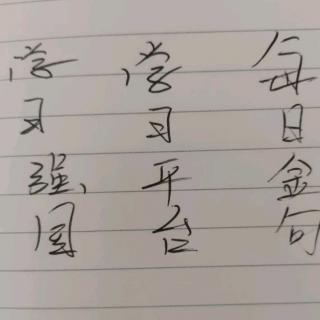 每日金句
学习平台
学习强国